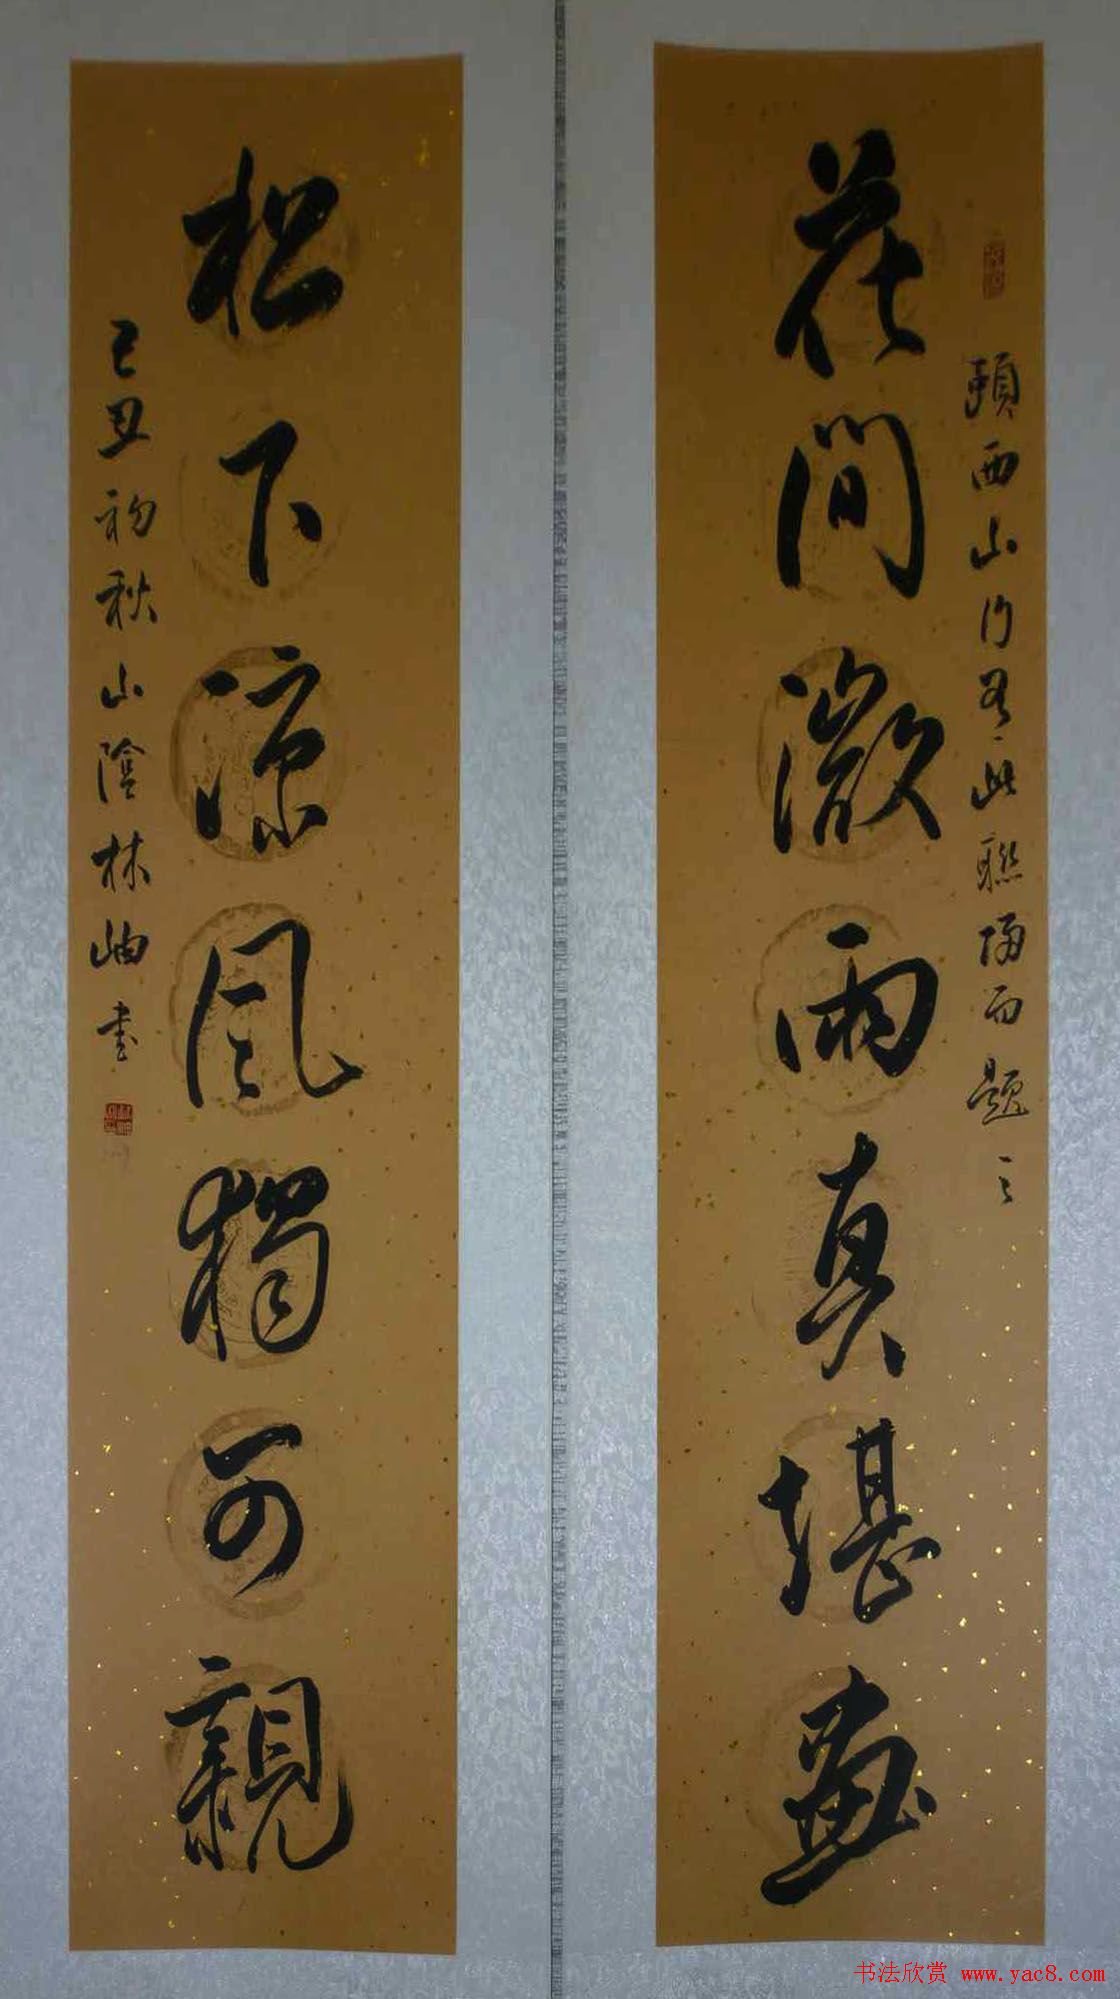 花間溦雨真堪畫
西山行此聯歸而題之
松下涼風獨可親
己丑初秋山陰林岫書
书法欣赏 www.yac8.com